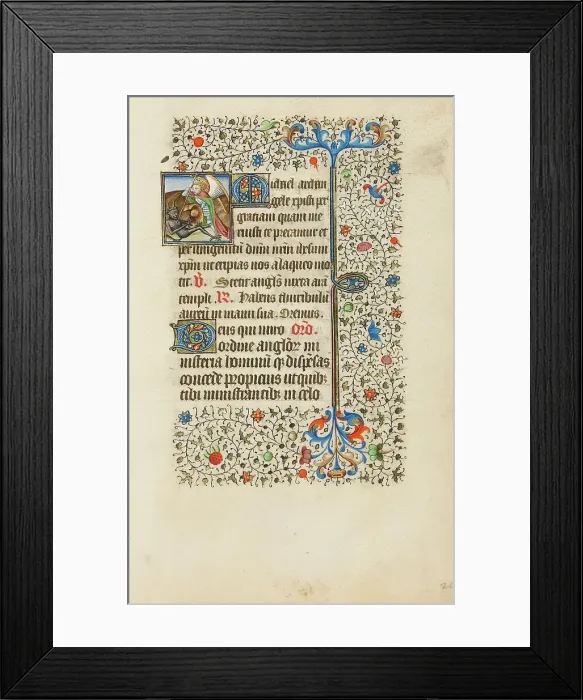 Michael archan
gele xpisti per
graciam quam me
ruisti te precamur et
per unigenitum dnm nrm ihesum
xpm ut eripias nos a laqueo mor
tis. V. Stetit angls iuxta ara
templi. R. Habens thuribulū
aureū in manu sua. Oremus.
Deus qui miro Orō.
ordine anglor mi
nisteria hominū q dispēsas
concede propicius ut quib;
tibi ministrantib; in celo